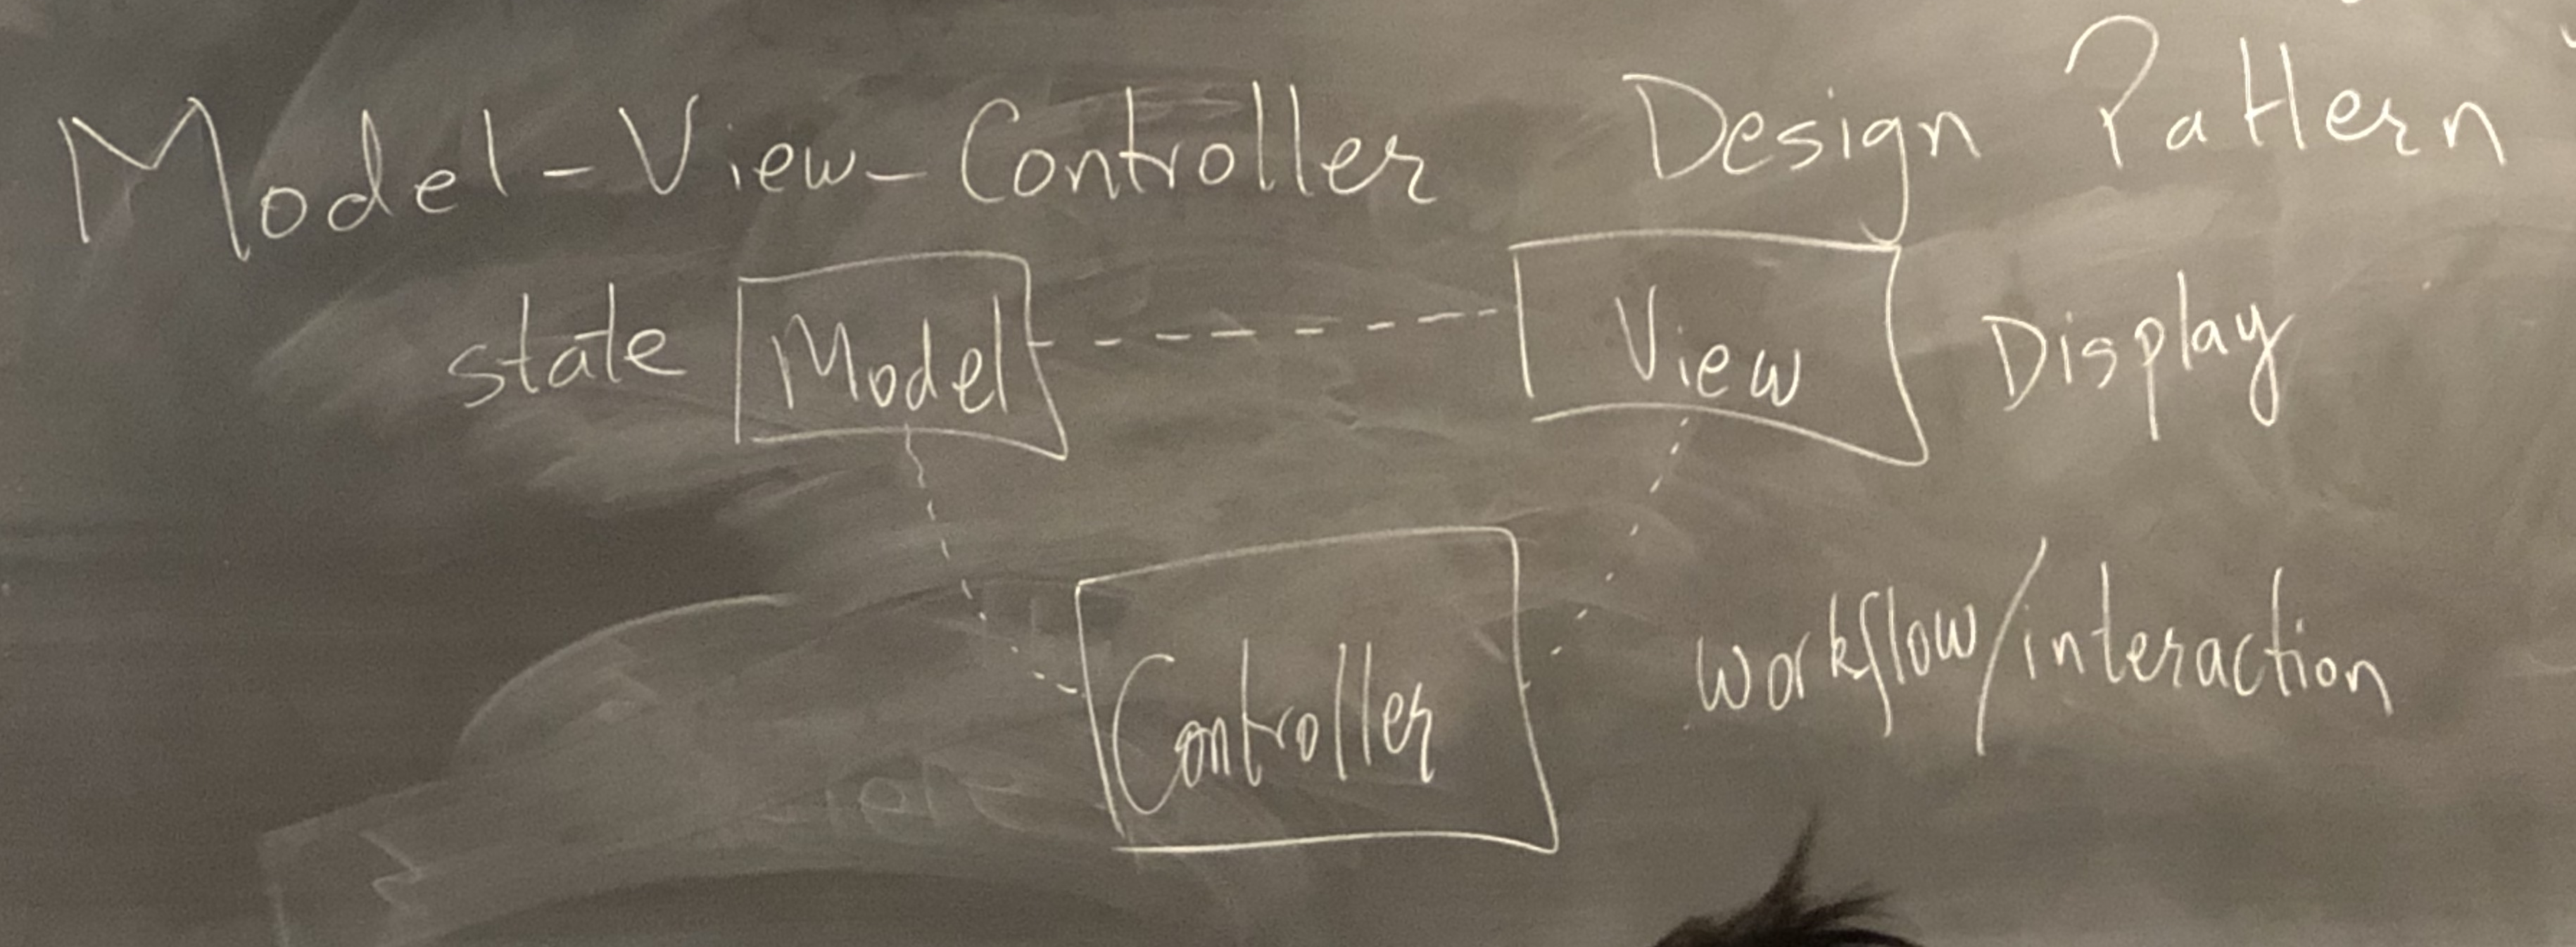 Model-View-Controller Design Pattern
state Model View Display
Controller workflow/interaction